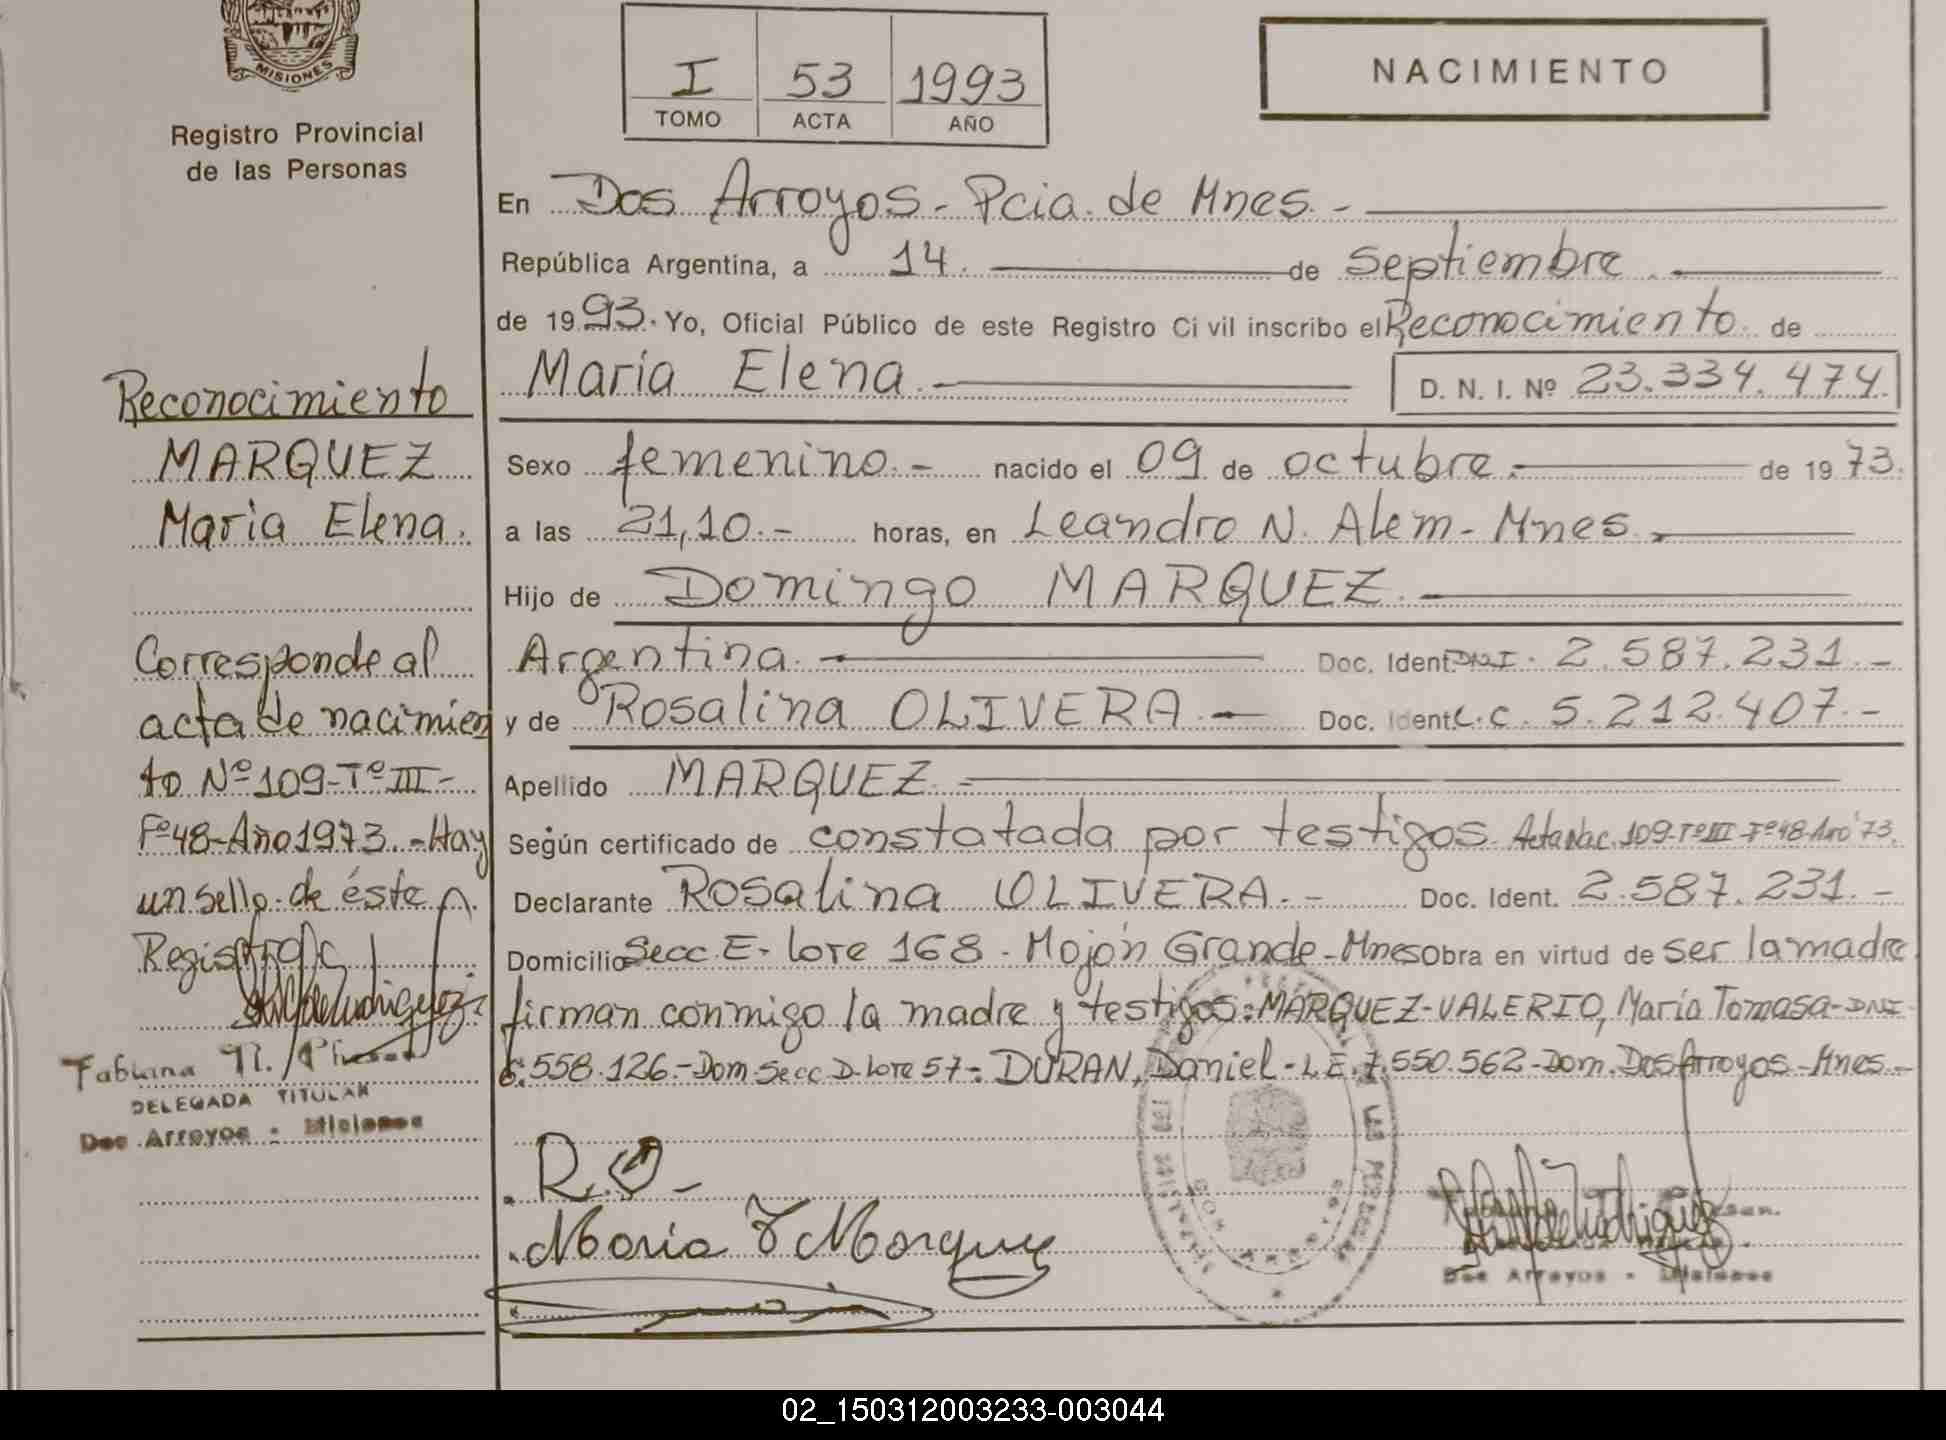 MISIONES
Registro Provincial
de las Personas
I 53 1993
TOMO ACTA AÑO
NACIMIENTO
En Dos Arroyos - Pcia. de Mnes. -
República Argentina, a 14. de Septiembre.
de 1993. Yo, Oficial Público de este Registro Civil inscribo el Reconocimiento de
María Elena. D. N. I. Nº 23.334.474.
Sexo femenino. - nacido el 09 de octubre. de 1973.
a las 21,10. - horas, en Leandro N. Alem - Mnes.
Hijo de Domingo MARQUEZ.
Argentina. Doc. Ident. DNI. 2.587.231. -
y de Rosalina OLIVERA. - Doc. Ident. L.C. 5.212.407. -
Apellido MARQUEZ.
Según certificado de constatada por testigos. Acta Nac. 109-Tº III-Fº 48-Año'73.
Declarante Rosalina OLIVERA. - Doc. Ident. 2.587.231. -
Domicilio Secc E - Lote 168 - Mojón Grande - Mnes Obra en virtud de ser la madre
firman conmigo la madre y testigos: MARQUEZ-VALERIO, María Tomasa - DNI
6.558.126.- Dom Secc D. Lote 57-. DURAN, Daniel - L.E. 7.550.562 - Dom. Dos Arroyos - Mnes. -
Reconocimiento
MARQUEZ
María Elena.
Corresponde al
acta de nacimien
to Nº 109-Tº III-
Fº 48-Año 1973.. - Hay
un sello de éste
Registro
Fabiana
DELEGADA TITULAR
Dos Arroyos - Misiones
R. O -
María T Marquez
Dos Arroyos - Misiones
02_150312003233-003044